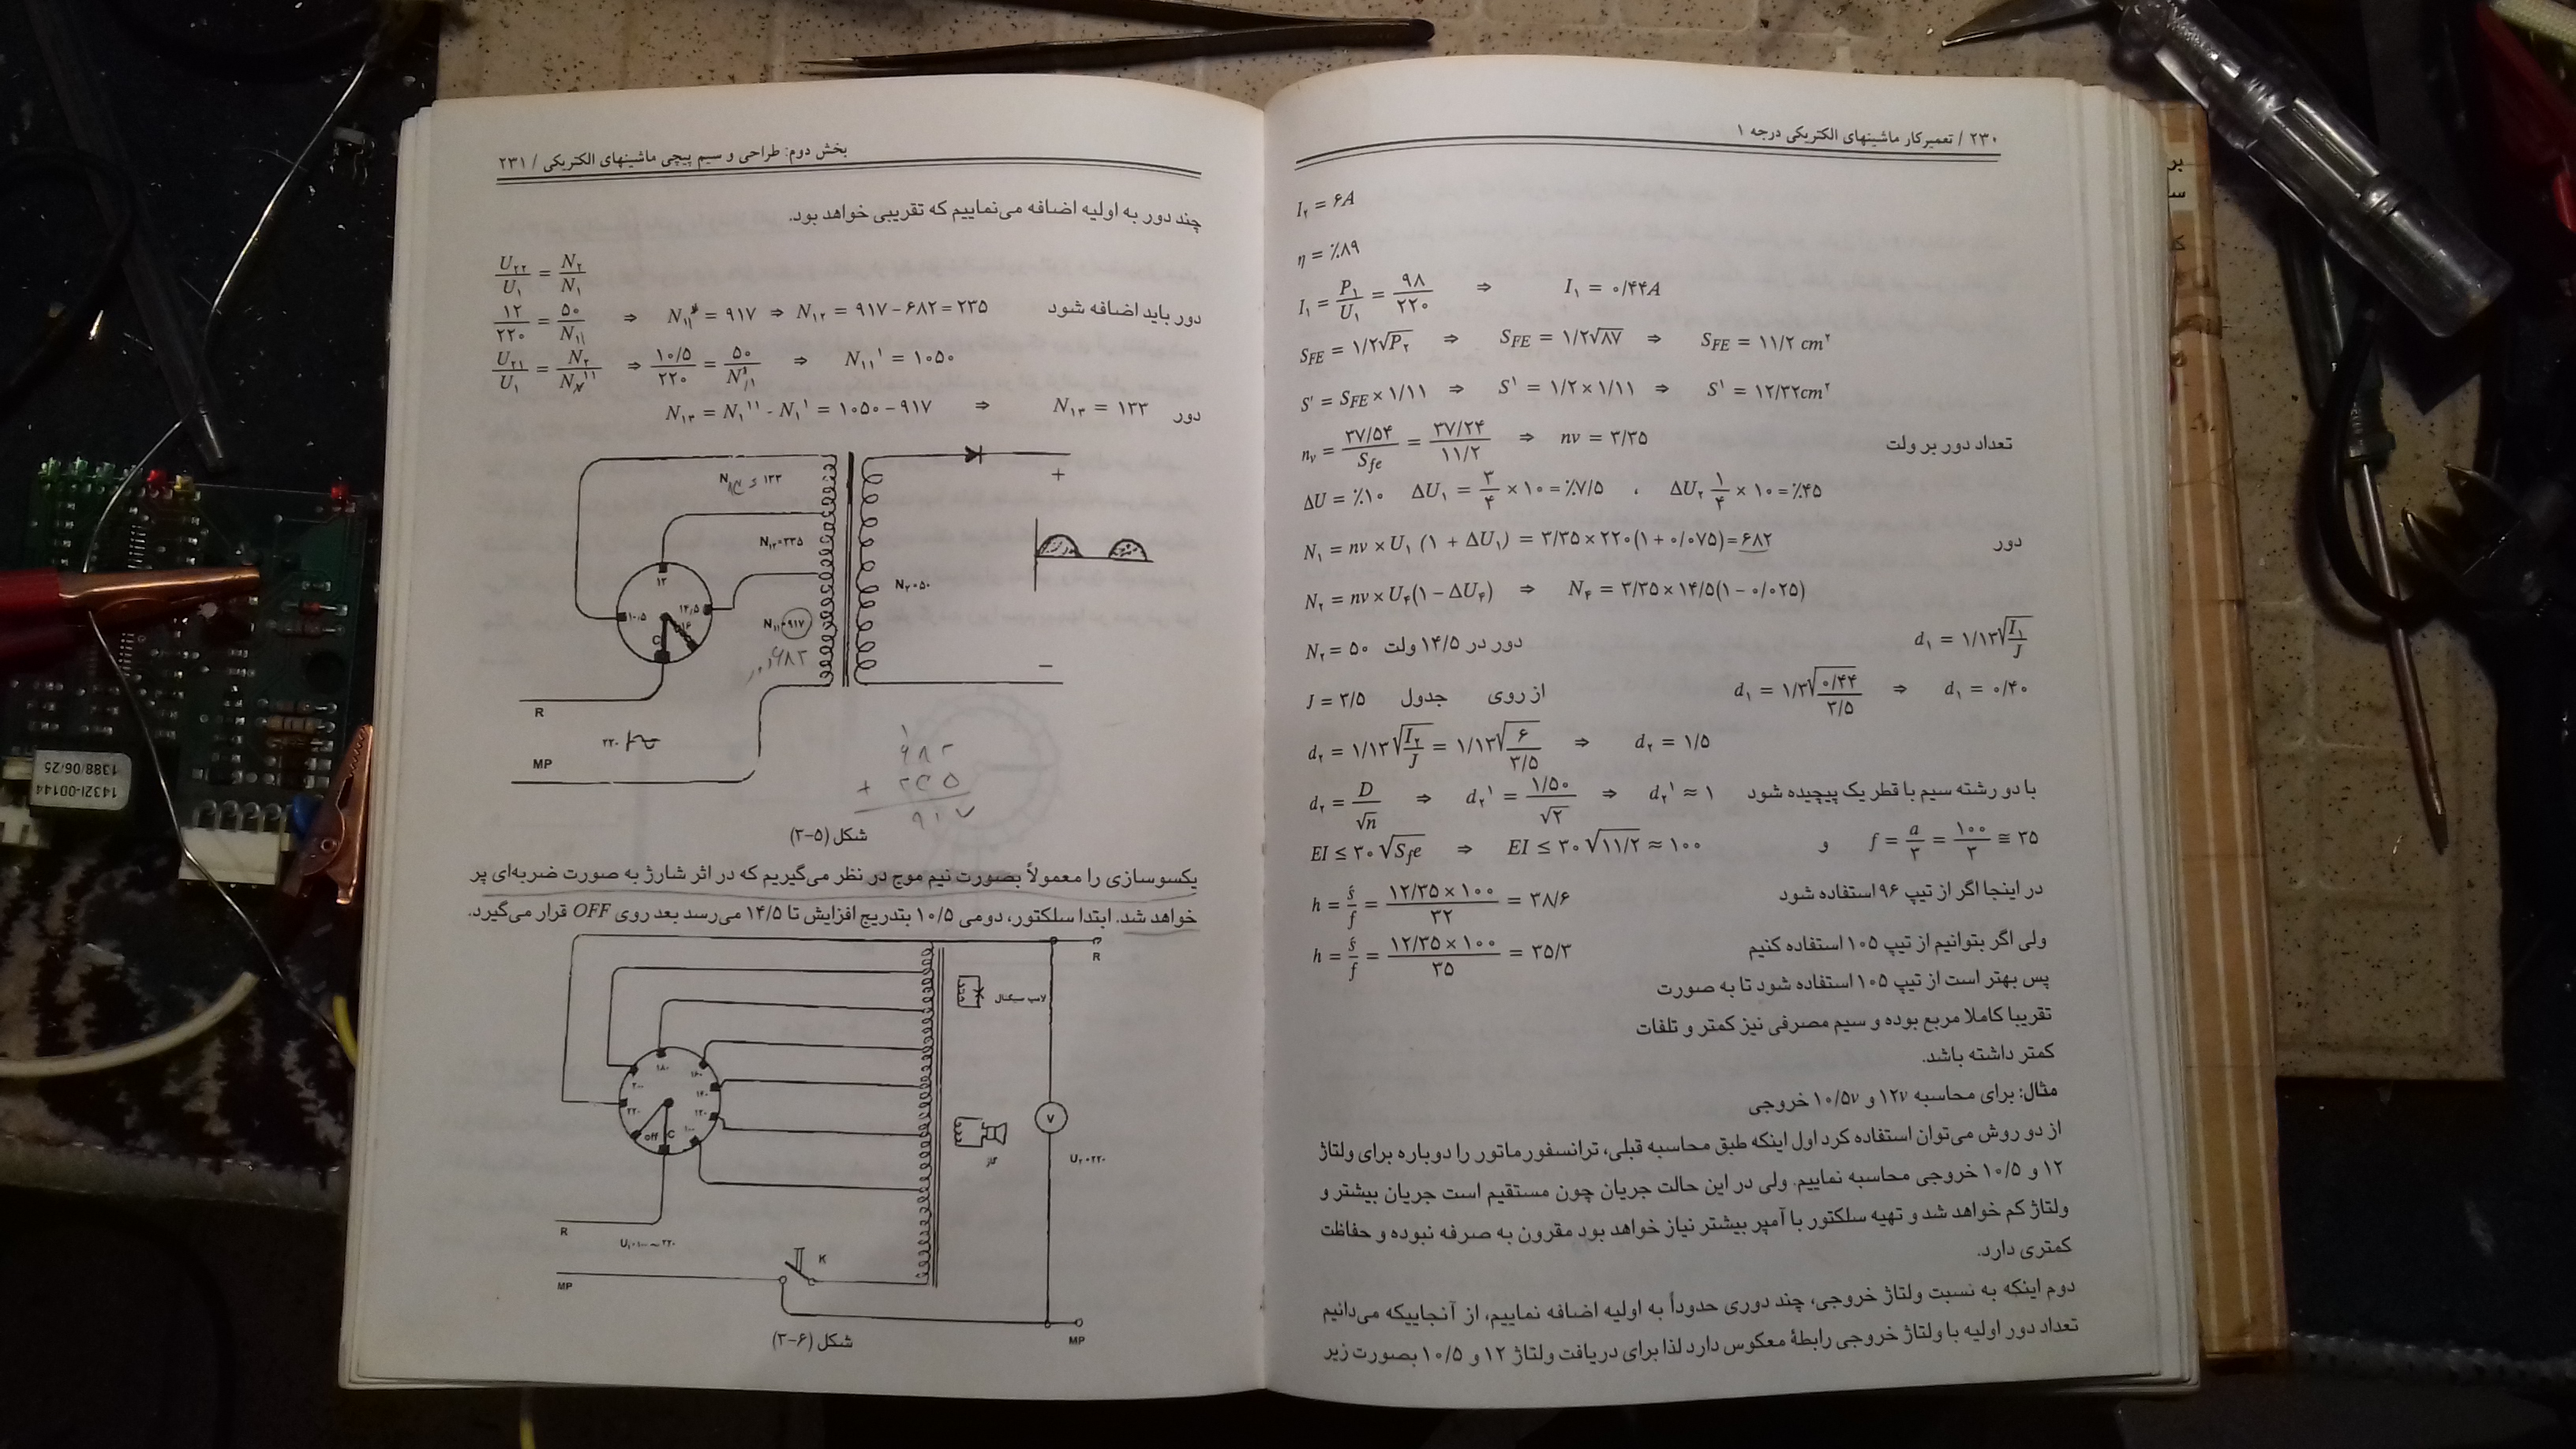 ۲۳۰ / تعمیرکار ماشینهای الکتریکی درجه ۱
I۲ = ۶A
η = ٪۸۹
I۱ = P۱/U۱ = ۹۸/۲۲۰ ⇒ I۱ = ۰/۴۴A
SFE = ۱/۲√P۲ ⇒ SFE = ۱/۲√۸۷ ⇒ SFE = ۱۱/۲ cm²
S' = SFE × ۱/۱۱ ⇒ S' = ۱/۲ × ۱/۱۱ ⇒ S' = ۱۲/۳۲cm²
nv = ۳۷/۵۴/Sfe = ۳۷/۲۴/۱۱/۲ ⇒ nv = ۳/۳۵ تعداد دور بر ولت
ΔU = ٪۱۰ ΔU۱ = ۳/۴ × ۱۰ = ٪۷/۵ ، ΔU۲ ۱/۴ × ۱۰ = ٪۴۵
N۱ = nv × U۱ (۱ + ΔU۱) = ۳/۳۵ × ۲۲۰(۱ + ۰/۰۷۵) = ۶۸۲ دور
N۲ = nv × U۴(۱ − ΔU۴) ⇒ N۴ = ۳/۳۵ × ۱۴/۵(۱ − ۰/۰۲۵)
N۲ = ۵۰ دور در ۱۴/۵ ولت d۱ = ۱/۱۳√I۱/J
J = ۳/۵ از روی جدول d۱ = ۱/۳√۰/۴۴/۳/۵ ⇒ d۱ = ۰/۴۰
d۲ = ۱/۱۳√I۲/J = ۱/۱۳√۶/۳/۵ ⇒ d۲ = ۱/۵
d۲ = D/√n ⇒ d۲' = ۱/۵۰/√۲ ⇒ d۲' ≈ ۱ با دو رشته سیم با قطر یک پیچیده شود
EI ≤ ۳۰√Sfe ⇒ EI ≤ ۳۰√۱۱/۲ ≈ ۱۰۰ و f = a/۳ = ۱۰۰/۳ ≅ ۳۵
h = ś/f = ۱۲/۳۵ × ۱۰۰/۳۲ = ۳۸/۶ در اینجا اگر از تیپ ۹۶ استفاده شود
h = ś/f = ۱۲/۳۵ × ۱۰۰/۳۵ = ۳۵/۳ ولی اگر بتوانیم از تیپ ۱۰۵ استفاده کنیم
پس بهتر است از تیپ ۱۰۵ استفاده شود تا به صورت
تقریبا کاملا مربع بوده و سیم مصرفی نیز کمتر و تلفات
کمتر داشته باشد.
مثال: برای محاسبه ۱۲v و ۱۰/۵v خروجی
از دو روش می‌توان استفاده کرد اول اینکه طبق محاسبه قبلی، ترانسفورماتور را دوباره برای ولتاژ
۱۲ و ۱۰/۵ خروجی محاسبه نماییم. ولی در این حالت جریان چون مستقیم است جریان بیشتر و
ولتاژ کم خواهد شد و تهیه سلکتور با آمپر بیشتر نیاز خواهد بود مقرون به صرفه نبوده و حفاظت
کمتری دارد.
دوم اینکه به نسبت ولتاژ خروجی، چند دوری حدوداً به اولیه اضافه نماییم، از آنجاییکه می‌دانیم
تعداد دور اولیه با ولتاژ خروجی رابطهٔ معکوس دارد لذا برای دریافت ولتاژ ۱۲ و ۱۰/۵ بصورت زیر
بخش دوم: طراحی و سیم پیچی ماشینهای الکتریکی / ۲۳۱
چند دور به اولیه اضافه می‌نماییم که تقریبی خواهد بود.
U۲۲/U۱ = N۲/N۱
۱۲/۲۲۰ = ۵۰/N۱۱ ⇒ N۱۱ = ۹۱۷ ⇒ N۱۲ = ۹۱۷ − ۶۸۲ = ۲۳۵ دور باید اضافه شود
U۲۱/U۱ = N۲/N۱۱ ⇒ ۱۰/۵/۲۲۰ = ۵۰/N'۱۱ ⇒ N۱۱' = ۱۰۵۰
N۱۳ = N۱'' - N۱' = ۱۰۵۰ − ۹۱۷ ⇒ N۱۳ = ۱۳۳ دور
۱۳۳
+
N۱۲=۲۳۵
۱۲
۱۰/۵
۱۴/۵
۱۶
C
N۱۱=۹۱۷
۶۸۲
N۲=۵۰
−
R
۲۲۰
MP
۱
۶۸۲
+ ۲۳۵
۹۱۷
شکل (۵-۳)
یکسوسازی را معمولاً بصورت نیم موج در نظر می‌گیریم که در اثر شارژ به صورت ضربه‌ای پر
خواهد شد. ابتدا سلکتور، دومی ۱۰/۵ بتدریج افزایش تا ۱۴/۵ می‌رسد بعد روی OFF قرار می‌گیرد.
R
لامپ سیگنال
۱۸۰
۱۶۰
۲۰۰
۱۴۰
۲۲۰
۱۲۰
۱۰۰
off
C
V
U۲=۲۲۰
R
U۱=۱۰۰~۲۲۰
K
MP
MP
شکل (۶-۳)
1388/06/25
1432I-00144
بر
سا